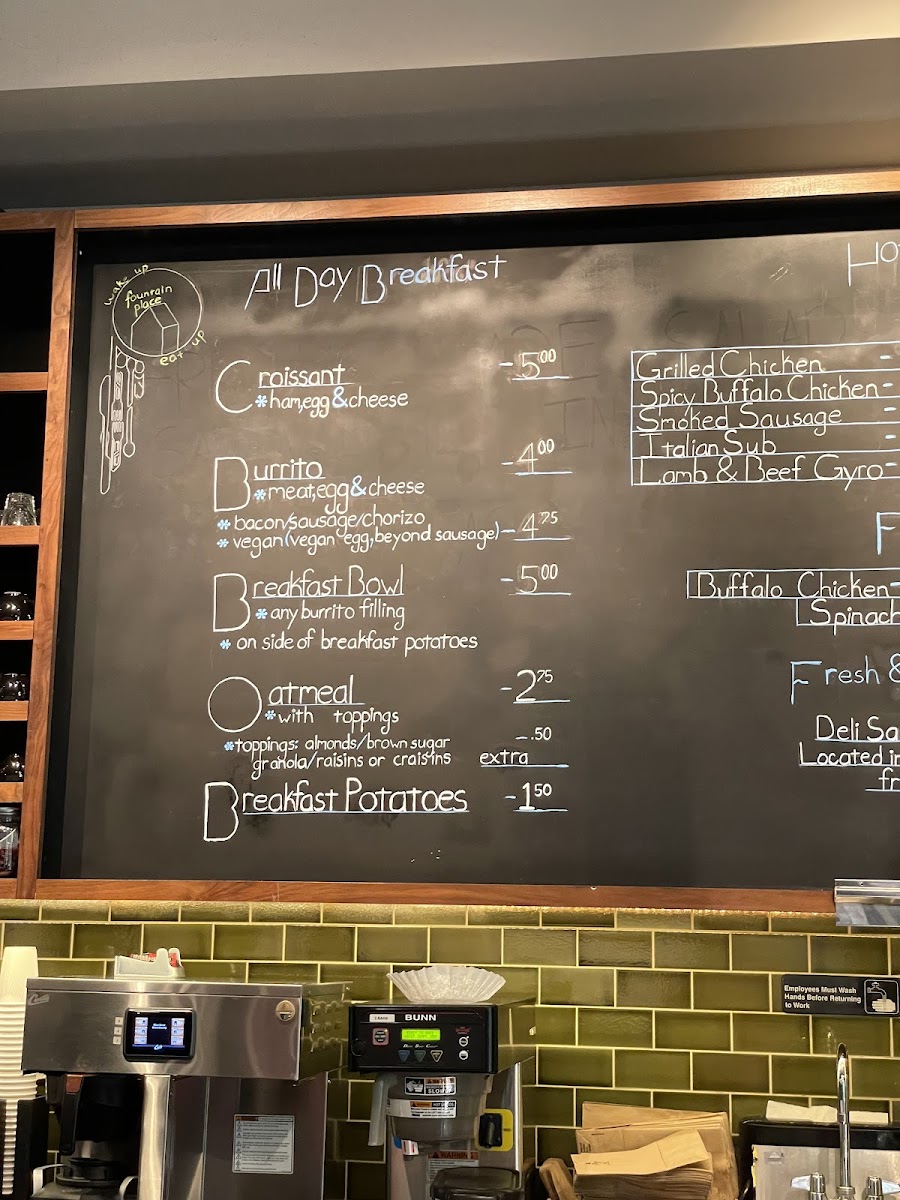 wake up
fountain
place
eat up
All Day Breakfast
Croissant -5.00
*ham,egg&cheese
Burrito -4.00
*meat,egg&cheese
*bacon/sausage/chorizo
*vegan(vegan egg,beyond sausage) -4.75
Breakfast Bowl -5.00
*any burrito filling
*on side of breakfast potatoes
Oatmeal -2.75
*with toppings
*toppings: almonds/brown sugar -.50
granola/raisins or craisins extra
Breakfast Potatoes -1.50
Grilled Chicken -
Spicy Buffalo Chicken -
Smoked Sausage -
Italian Sub -
Lamb & Beef Gyro -
Buffalo Chicken -
Spinach
Fresh &
Located
Employees Must Wash
Hands Before Returning
to Work
BUNN
WARNING